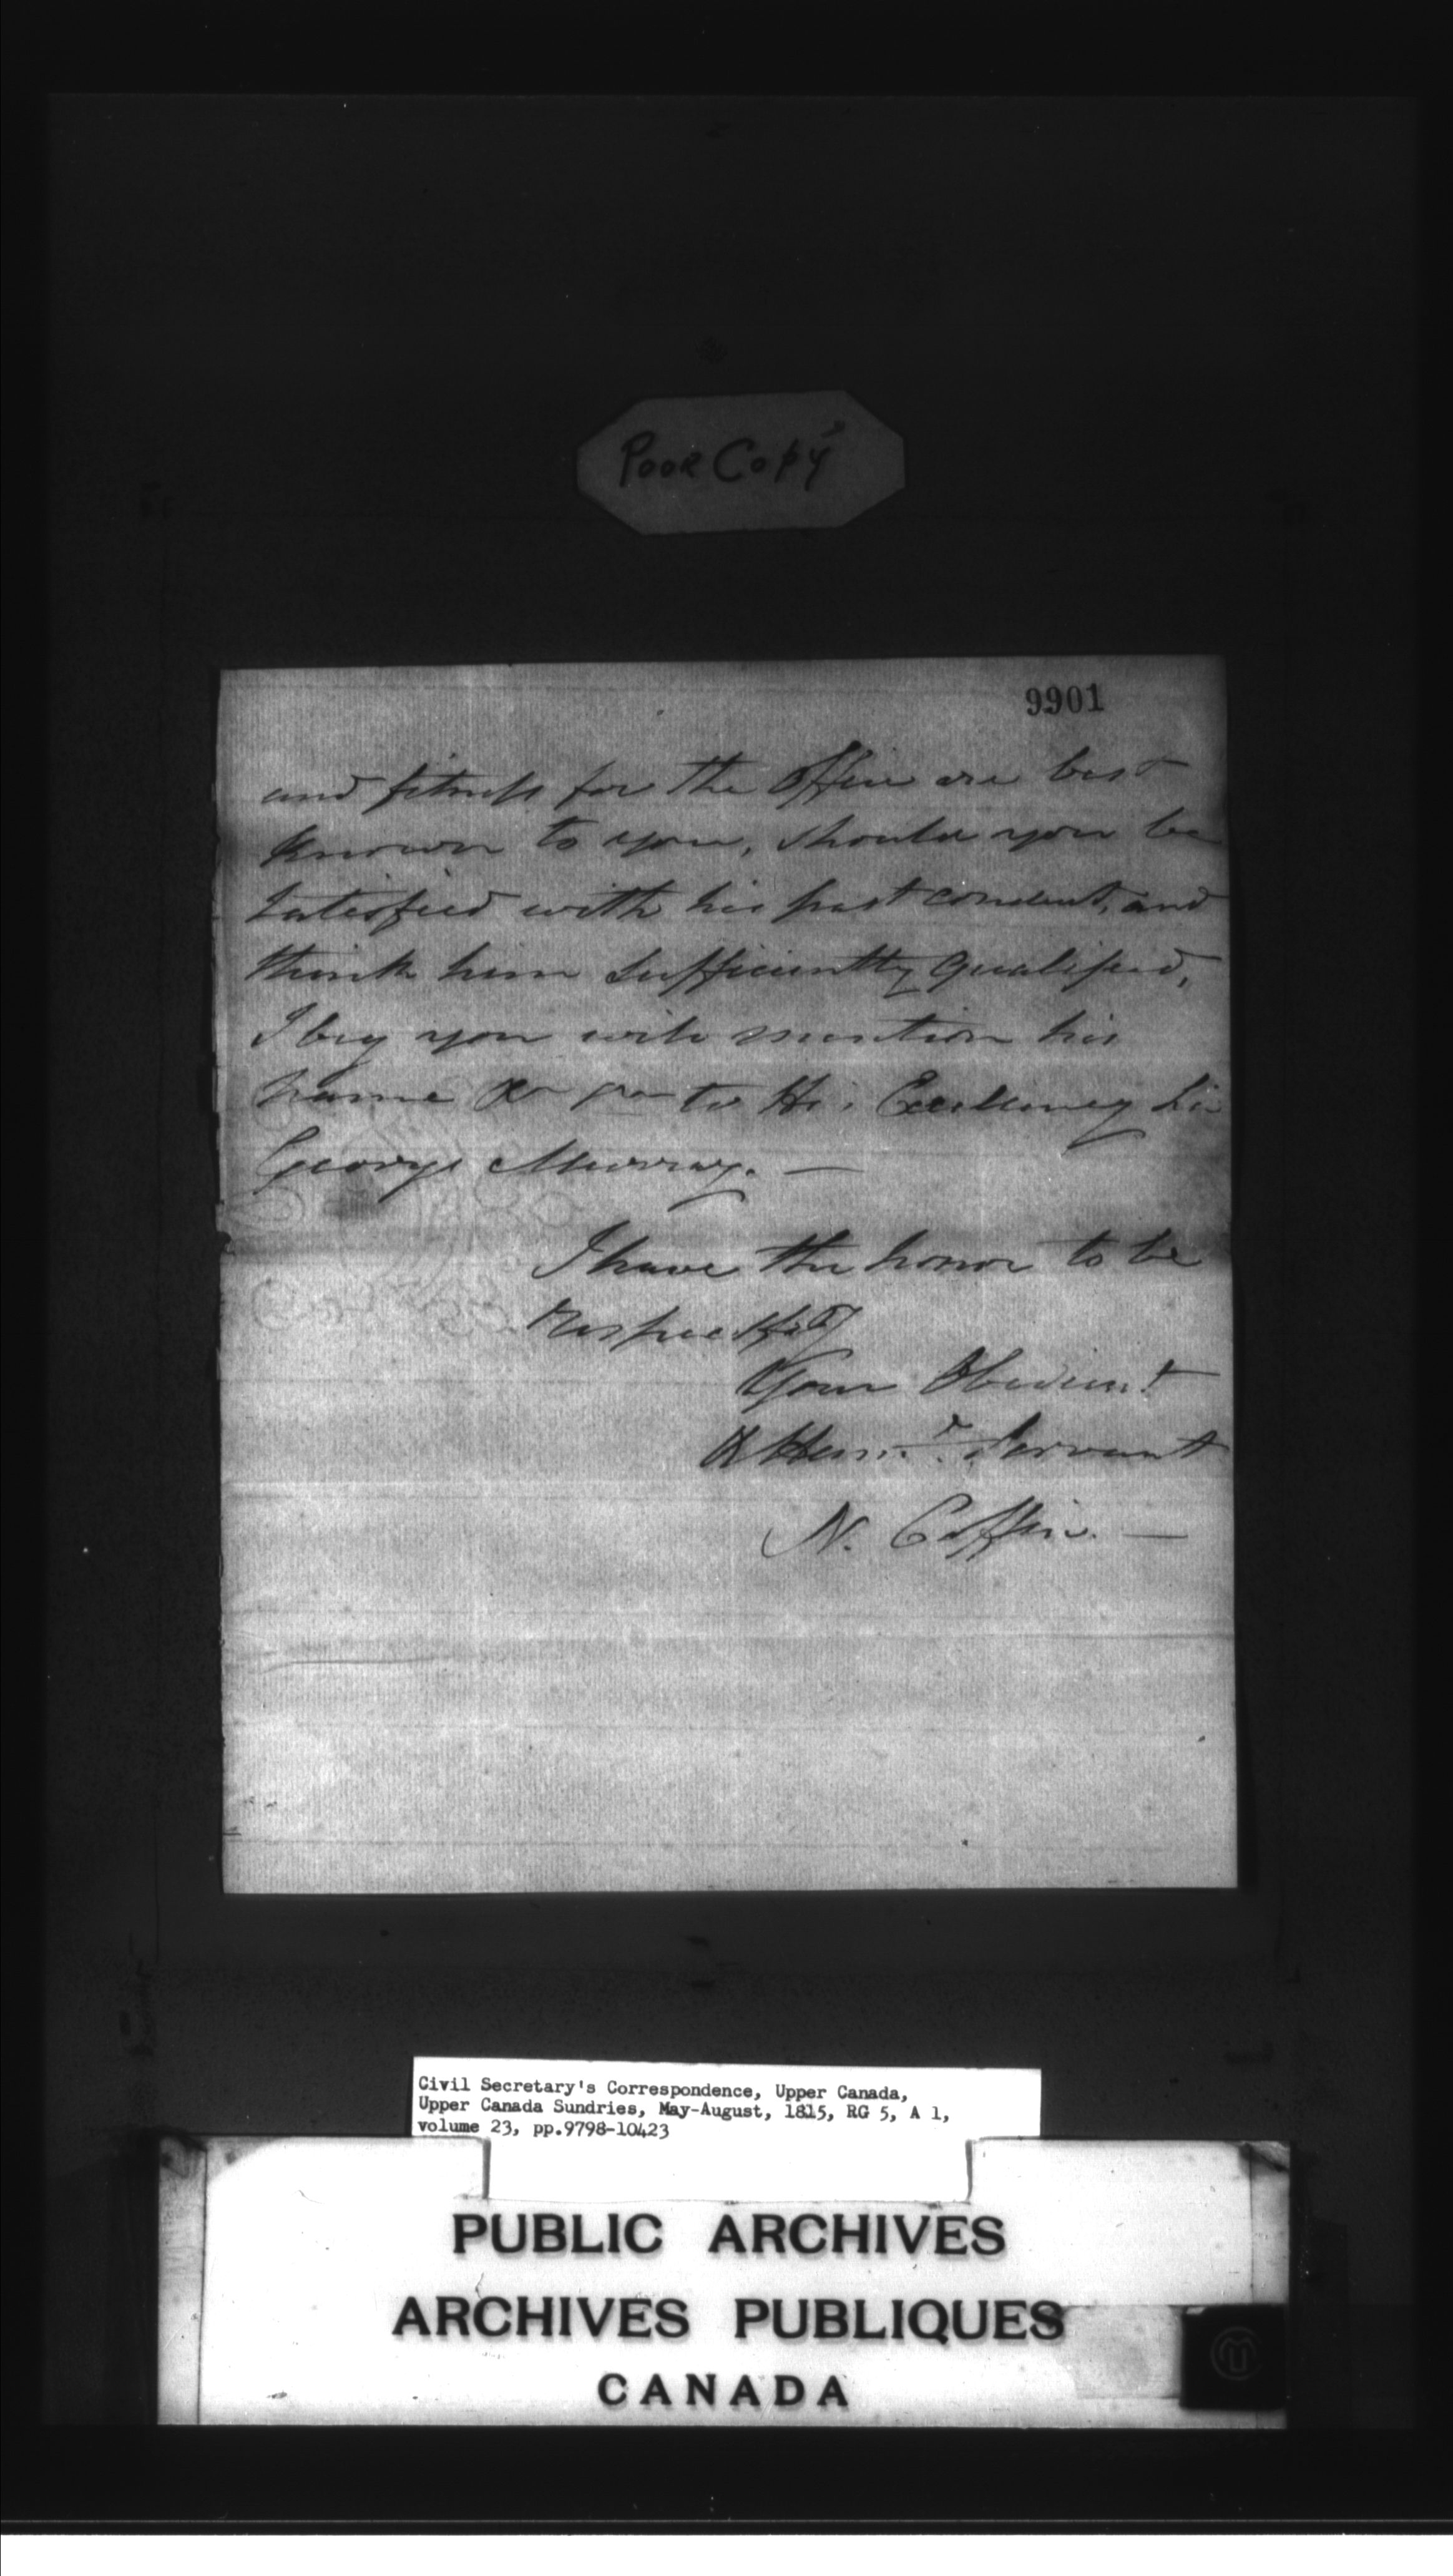 Poor Copy
9901
and fitness for the Office are best
known to you, should you be
satisfied with his past conduct, and
think him sufficiently qualified,
I beg you will mention his
name to His Excellency Sir
George Murray. —
I have the honor to be
Respectfy
Your Obedient
& Hum. Servant
N. Coffin. —
Civil Secretary's Correspondence, Upper Canada,
Upper Canada Sundries, May-August, 1815, RG 5, A 1,
volume 23, pp.9798-10423
PUBLIC ARCHIVES
ARCHIVES PUBLIQUES
CANADA